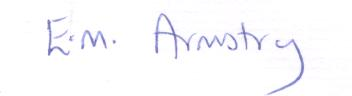 E.M. Armstrg